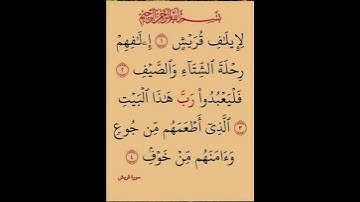 بسم الله الرحمن الرحيم
لِإِيلَٰفِ قُرَيْشٍ ۝١ إِۦلَٰفِهِمْ
رِحْلَةَ ٱلشِّتَآءِ وَٱلصَّيْفِ
۝٢ فَلْيَعْبُدُوا۟ رَبَّ هَٰذَا ٱلْبَيْتِ
۝٣ ٱلَّذِىٓ أَطْعَمَهُم مِّن جُوعٍ
وَءَامَنَهُم مِّنْ خَوْفٍۭ ۝٤
سورة قريش